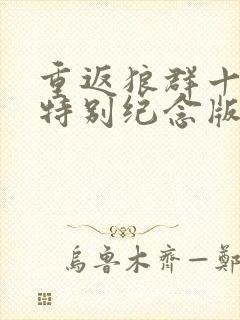 重返狼群十
特别纪念版
乌鲁木齐一鄭